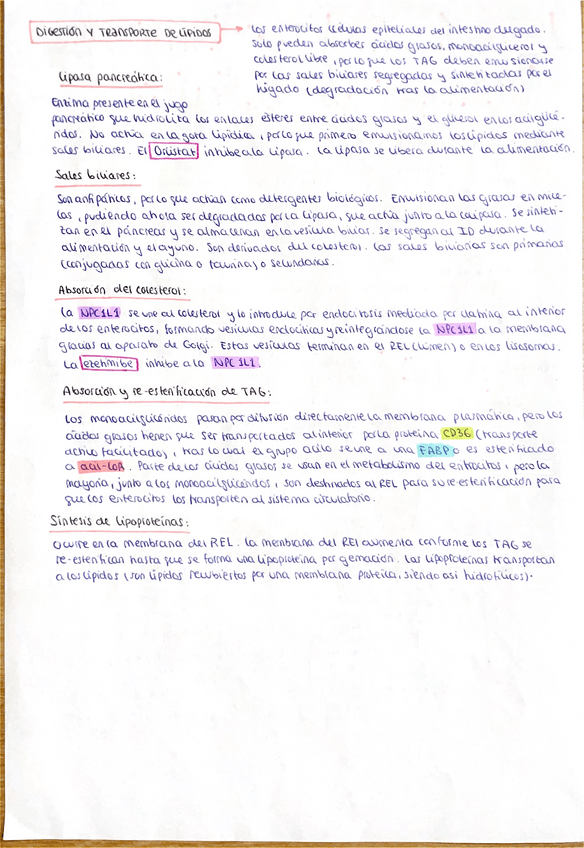 DIGESTIÓN Y TRANSPORTE DE LÍPIDOS
Los enterocitos (células epiteliales del intestino delgado.
Solo pueden absorber ácidos grasos, monoacilglicerol y
colesterol libre, por lo que los TAG deben emulsionarse
por las sales biliares segregadas y sintetizadas por el
hígado (degradación tras la alimentación)
Lipasa pancreática:
Enzima presente en el jugo
pancreático que hidroliza los enlaces ésteres entre ácidos grasos y el glicerol en los acilglicé-
ridos. No actúa en la gota lipídica, por lo que primero emulsionamos los lípidos mediante
sales biliares. El Orlistat inhibe a la lipasa. La lipasa se libera durante la alimentación.
Sales biliares:
Son anfipáticos, por lo que actúan como detergentes biológicos. Emulsionan las grasas en mice-
las, pudiendo ahora ser degradados por la lipasa, que actúa junto a la colipasa. Se sinteti-
zan en el páncreas y se almacenan en la vesícula biliar. Se segregan al ID durante la
alimentación y el ayuno. Son derivados del colesterol. Las sales biliarias son primarias
(conjugadas con glicina o taurina) o secundarias.
Absorción del colesterol:
La NPC1L1 se une al colesterol y lo introduce por endocitosis mediada por clatrina al interior
de los enterocitos, formando vesículas endocíticas y reintegrándose la NPC1L1 a la membrana
gracias al aparato de Golgi. Estas vesículas terminan en el REL (lumen) o en los lisosomas.
La ezetimibe inhibe a la NPC1L1.
Absorción y re-esterificación de TAG:
Los monoacilglicéridos pasan por difusión directamente la membrana plasmática, pero los
ácidos grasos tienen que ser transportados al interior por la proteína CD36 (transporte
activo facilitado), tras lo cual el grupo acilo se une a una FABP o es esterificado
a acil-CoA. Parte de los ácidos grasos se usan en el metabolismo del enterocito, pero la
mayoría, junto a los monoacilglicéridos, son destinados al REL para su re esterificación para
que los enterocitos los transporten al sistema circulatorio.
Síntesis de lipoproteínas:
Ocurre en la membrana del REL. La membrana del REL aumenta conforme los TAG se
re-esterifican hasta que se forma una lipoproteína por gemación. Las lipoproteínas transportan
a los lípidos (son lípidos recubiertos por una membrana proteica, siendo así hidrofílicos).